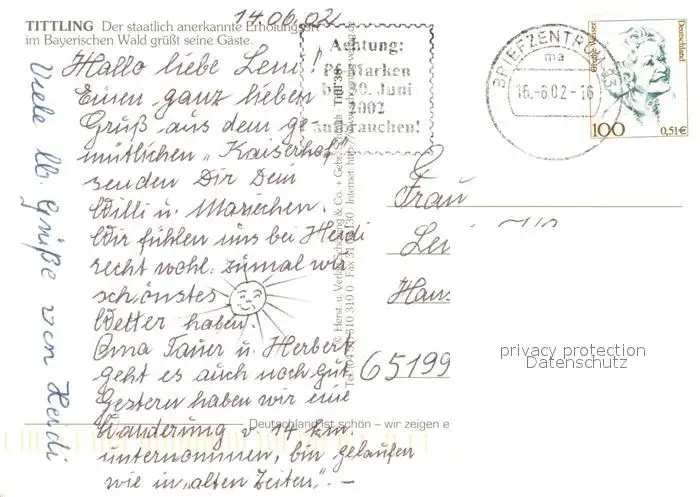 14.06.02
TITTLING Der staatlich anerkannte Erholungsort
im Bayerischen Wald grüßt seine Gäste.
Hallo liebe Leni!
Einen ganz lieben
Gruß aus dem ge-
mütlichen „Kaiserhof"
senden Dir Dein
Willi u. Mariechen.
Wir fühlen uns bei Heidi
recht wohl. zumal wir
schönstes
Wetter haben.
Oma Tauer u. Herbert
geht es auch noch gut
Gestern haben wir eine
Wanderung v. 14 km.
unternommen, bin gelaufen
wie in „alten Zeiten". –
Viele lb. Grüße von Heidi
Achtung:
Pf-Marken
bis 30. Juni
2002
aufbrauchen!
BRIEFZENTRUM
ma
16.-6.02-16
Grethe Weiser
Deutschland
100
0,51€
© Herst. u. Verlag Schöning & Co. + Gebr. Schmidt
Titl 38
Internet: http://www.
Frau
Hans
65199
privacy protection
Datenschutz
Deutschland ist schön – wir zeigen e